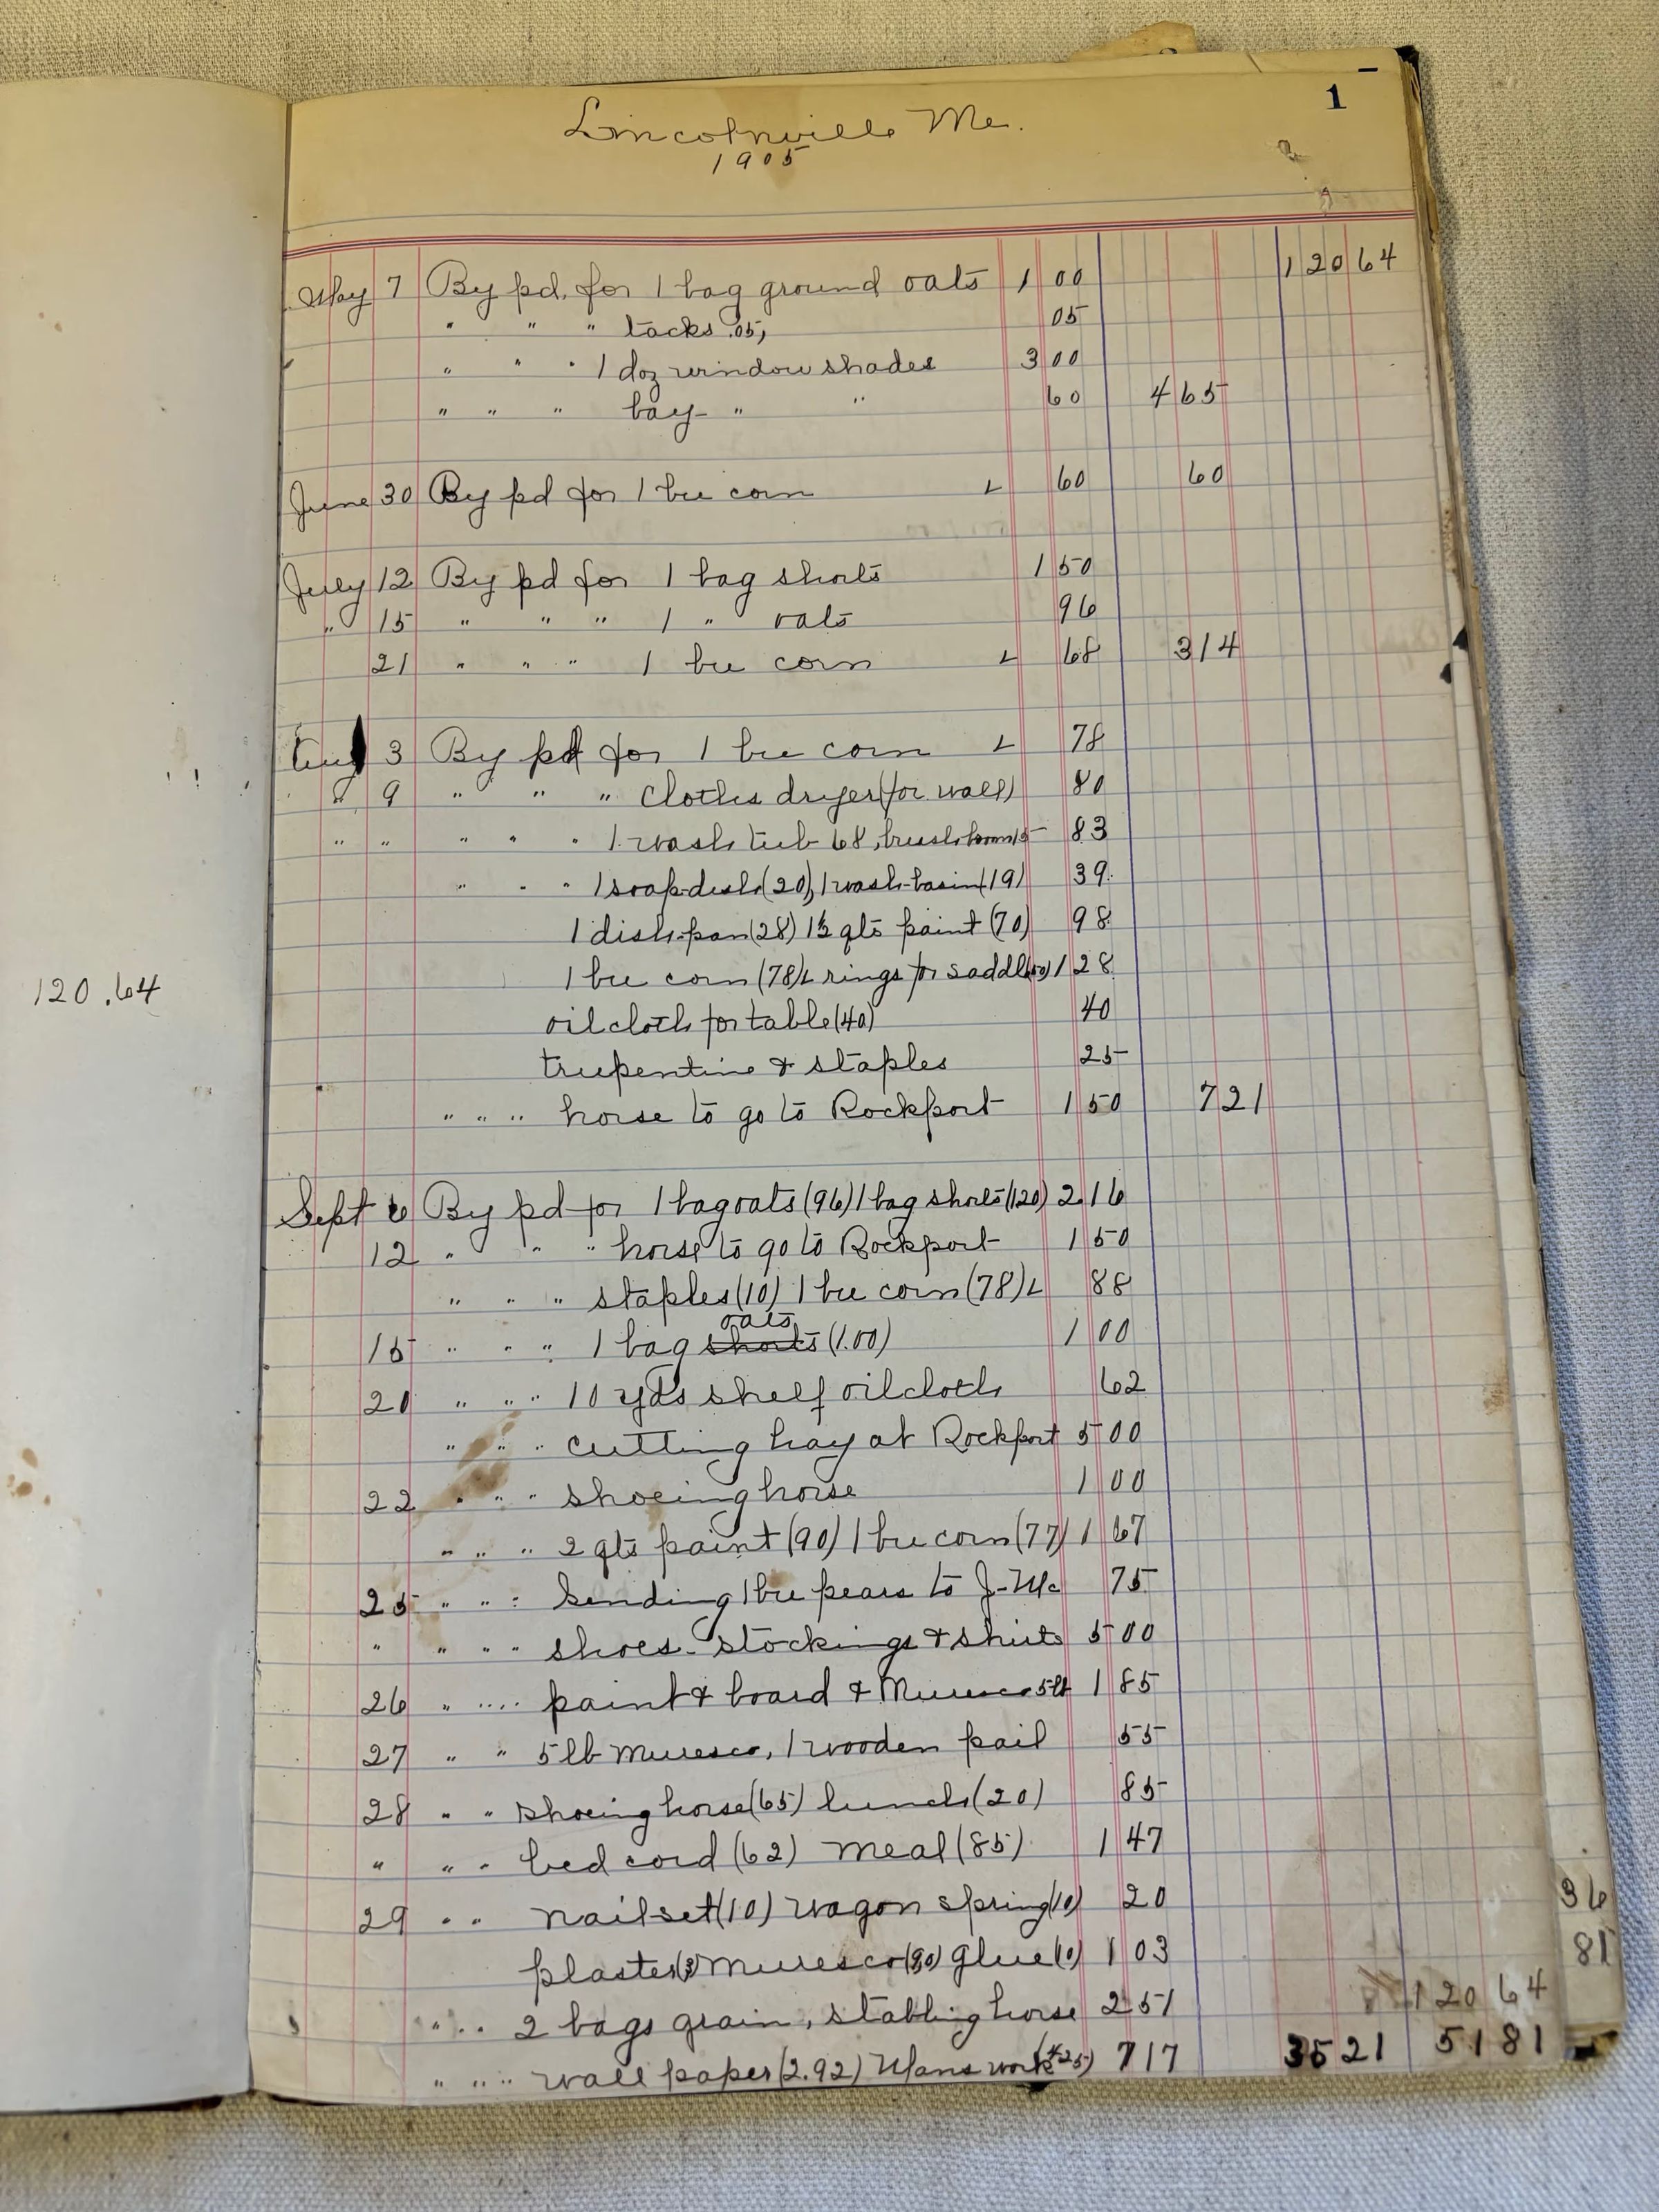 1
Lincolnville Me.
1905
120 64
May 7 By pd. for 1 bag ground oats 1 00
" " " tacks .05, 05
" " " 1 doz window shades 3 00
" " " bay- " " 60 4 65
June 30 By pd for 1 bu corn L 60 60
July 12 By pd for 1 bag shorts 1 50
" 15 " " " 1 " oats 96
21 " " " 1 bu corn L 68 3 14
Aug 3 By pd for 1 bu corn L 78
" 9 " " " clothes dryer (for wall) 80
" " " " " 1 wash tub 68, brush broom 15 83
" " " 1 soap-dish (20), 1 wash-basin (19) 39
1 dish-pan (28) 1½ qts paint (70) 98
1 bu corn (78) L rings for saddle (50) 1 28
oil cloth for table (40) 40
trupentine & staples 25
" " " horse to go to Rockport 1 50 7 21
120.64
Sept 6 By pd for 1 bag oats (96) 1 bag shorts (120) 2.16
12 " " " horse to go to Rockport 1 50
" " " staples (10) 1 bu corn (78) L 88
oats
15 " " " 1 bag shorts (1.00) 1 00
20 " " " 10 yds shelf oilcloth 62
" " " cutting hay at Rockport 5 00
22 " " " shoeing horse 1 00
" " " 2 qts paint (90) 1 bu corn (77) 1 67
25 " " " Sending 1 bu pears to J-Mc 75
" " " " shoes - stockings & shirts 5 00
26 " " " paint & board & Muresco 5 lb 1 85
27 " " 5 lb Muresco, 1 wooden pail 55
28 " " shoeing horse (65) lunch (20) 85
" " " bed cord (62) meal (85) 1 47
29 " " nailset (10) wagon spring (10) 20
36
plaster Muresco (90) glue (10) 1 03
81
120 64
" " 2 bags grain, stabling horse 2 51
" " " wall paper (2.92) Mans work (4.25) 7 17 35 21 51 81